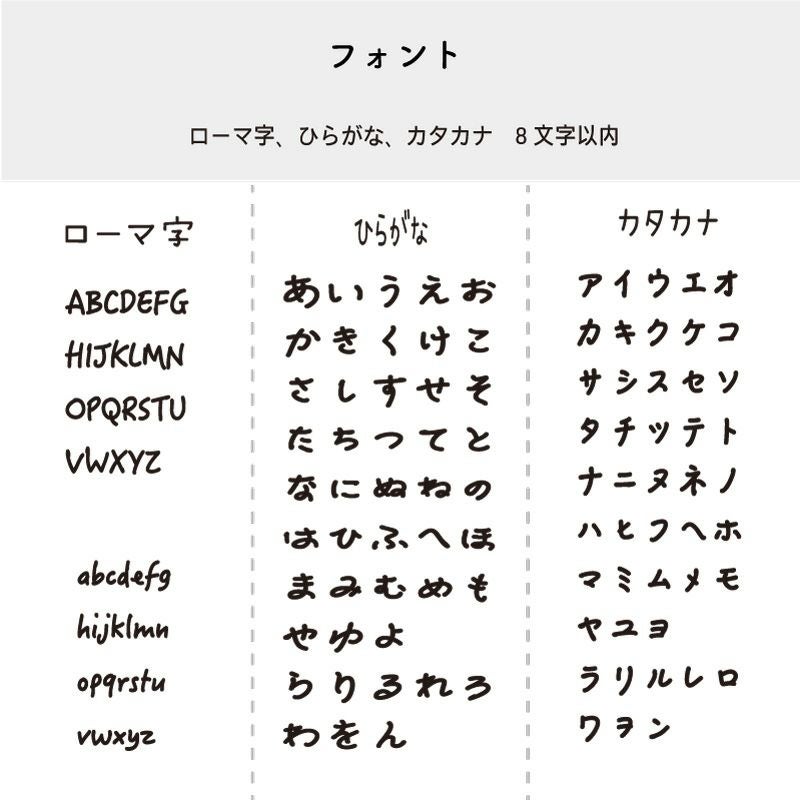 フォント
ローマ字、ひらがな、カタカナ　8文字以内
ローマ字
ABCDEFG
HIJKLMN
OPQRSTU
VWXYZ
abcdefg
hijklmn
opqrstu
vwxyz
ひらがな
あいうえお
かきくけこ
さしすせそ
たちつてと
なにぬねの
はひふへほ
まみむめも
やゆよ
らりるれろ
わをん
カタカナ
アイウエオ
カキクケコ
サシスセソ
タチツテト
ナニヌネノ
ハヒフヘホ
マミムメモ
ヤユヨ
ラリルレロ
ワヲン